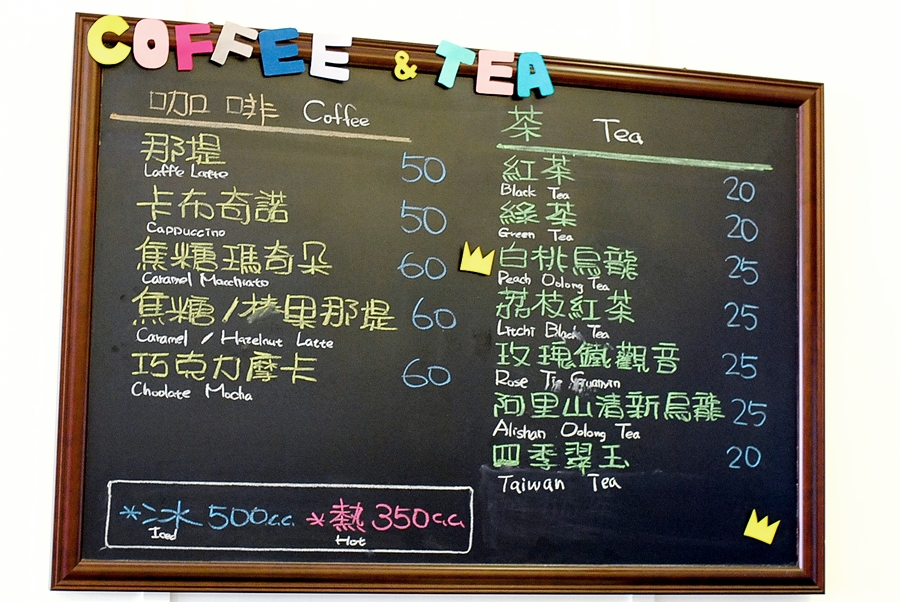 COFFEE & TEA
咖啡 Coffee
那堤 50
Laffe Latte
卡布奇諾 50
Cappuccino
焦糖瑪奇朵 60
Caramel Macchiato
焦糖/榛果那堤 60
Caramel / Hazelnut Latte
巧克力摩卡 60
Choolate Mocha
*冰 500c.c. *熱 350c.c
Iced Hot
茶 Tea
紅茶 20
Black Tea
綠茶 20
Green Tea
白桃烏龍 25
Peach Oolong Tea
荔枝紅茶 25
Litchi Black Tea
玫瑰鐵觀音 25
Rose Guanyin
阿里山清新烏龍 25
Alishan Oolong Tea
四季翠玉 20
Taiwan Tea